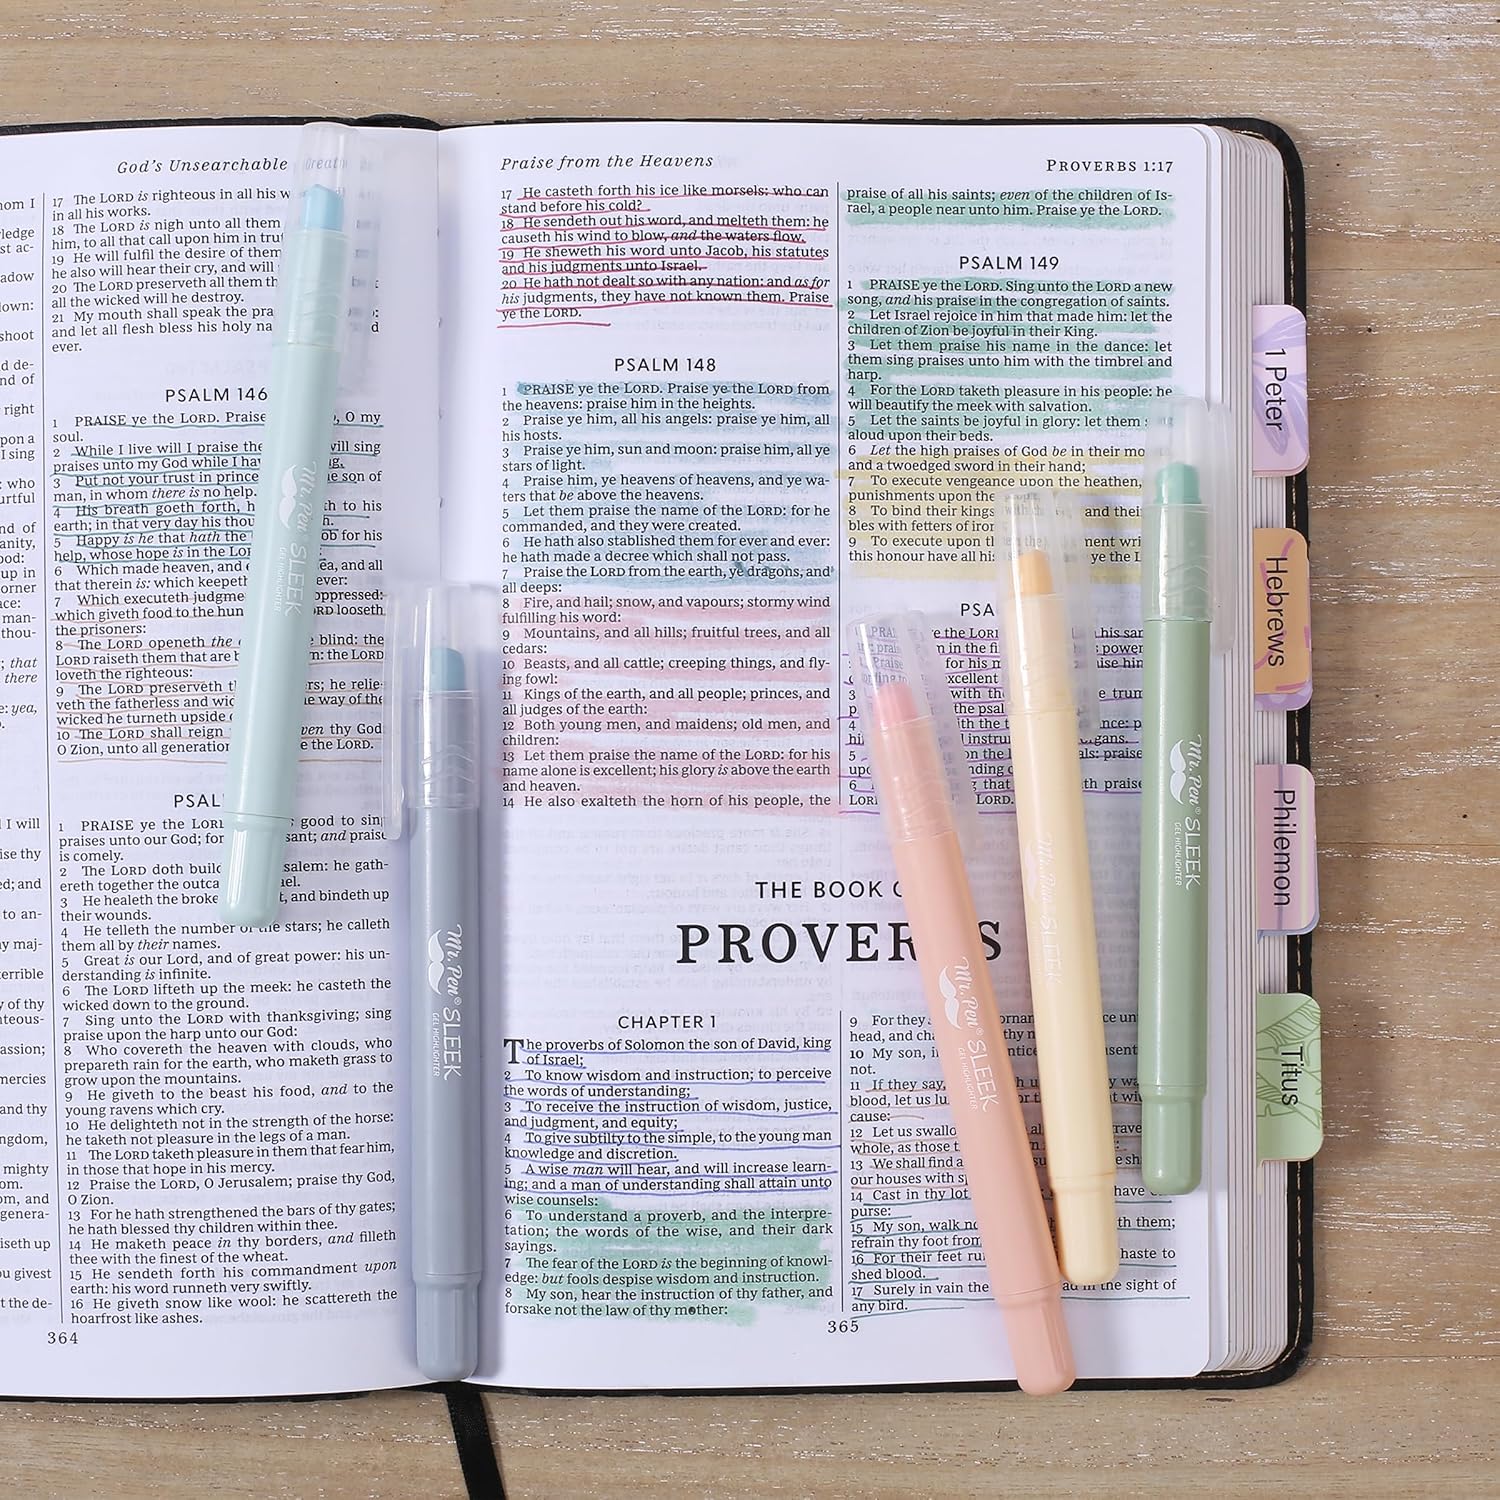 God's Unsearchable Greatn
17 The LORD is righteous in all his w
in all his works.
18 The LORD is nigh unto all them
him, to all that call upon him in tru
19 He will fulfil the desire of them
he also will hear their cry, and will
20 The LORD preserveth all them th
all the wicked will he destroy.
21 My mouth shall speak the pra
and let all flesh bless his holy na
ever.
PSALM 146
1 PRAISE ye the LORD. Praise O my
soul.
2 While I live will I praise the will sing
praises unto my God while I hav
3 Put not your trust in prince son of
man, in whom there is no help.
4 His breath goeth forth, h th to his
earth; in that very day his thou
5 Happy is he that hath the ob for his
help, whose hope is in the LOR
6 Which made heaven, and e ea, and all
that therein is: which keepeth ever:
7 Which executeth judgme oppressed:
which giveth food to the hun ORD looseth
the prisoners:
8 The LORD openeth the e blind: the
LORD raiseth them that are b the LORD
loveth the righteous:
9 The LORD preserveth th rs; he relie-
veth the fatherless and wid way of the
wicked he turneth upside
10 The LORD shall reign even thy God
O Zion, unto all generation e the LORD.
PSAL
1 PRAISE ye the LORD good to sing
praises unto our God; for sant; and praise
is comely.
2 The LORD doth build salem: he gath-
ereth together the outca el.
3 He healeth the broke and bindeth up
their wounds.
4 He telleth the number of the stars; he calleth
them all by their names.
5 Great is our Lord, and of great power: his un-
derstanding is infinite.
6 The LORD lifteth up the meek: he casteth the
wicked down to the ground.
7 Sing unto the LORD with thanksgiving; sing
praise upon the harp unto our God:
8 Who covereth the heaven with clouds, who
prepareth rain for the earth, who maketh grass to
grow upon the mountains.
9 He giveth to the beast his food, and to the
young ravens which cry.
10 He delighteth not in the strength of the horse:
he taketh not pleasure in the legs of a man.
11 The LORD taketh pleasure in them that fear him,
in those that hope in his mercy.
12 Praise the LORD, O Jerusalem; praise thy God,
O Zion.
13 For he hath strengthened the bars of thy gates;
he hath blessed thy children within thee.
14 He maketh peace in thy borders, and filleth
thee with the finest of the wheat.
15 He sendeth forth his commandment upon
earth: his word runneth very swiftly.
16 He giveth snow like wool: he scattereth the
hoarfrost like ashes.
364
Praise from the Heavens
PROVERBS 1:17
17 He casteth forth his ice like morsels: who can
stand before his cold?
18 He sendeth out his word, and melteth them: he
causeth his wind to blow, and the waters flow.
19 He sheweth his word unto Jacob, his statutes
and his judgments unto Israel.
20 He hath not dealt so with any nation: and as for
his judgments, they have not known them. Praise
ye the LORD.
PSALM 148
1 PRAISE ye the LORD. Praise ye the LORD from
the heavens: praise him in the heights.
2 Praise ye him, all his angels: praise ye him, all
his hosts.
3 Praise ye him, sun and moon: praise him, all ye
stars of light.
4 Praise him, ye heavens of heavens, and ye wa-
ters that be above the heavens.
5 Let them praise the name of the LORD: for he
commanded, and they were created.
6 He hath also stablished them for ever and ever:
he hath made a decree which shall not pass.
7 Praise the LORD from the earth, ye dragons, and
all deeps:
8 Fire, and hail; snow, and vapours; stormy wind
fulfilling his word:
9 Mountains, and all hills; fruitful trees, and all
cedars:
10 Beasts, and all cattle; creeping things, and fly-
ing fowl:
11 Kings of the earth, and all people; princes, and
all judges of the earth:
12 Both young men, and maidens; old men, and
children:
13 Let them praise the name of the LORD: for his
name alone is excellent; his glory is above the earth
and heaven.
14 He also exalteth the horn of his people, the
praise of all his saints; even of the children of Is-
rael, a people near unto him. Praise ye the LORD.
PSALM 149
1 PRAISE ye the LORD. Sing unto the LORD a new
song, and his praise in the congregation of saints.
2 Let Israel rejoice in him that made him: let the
children of Zion be joyful in their King.
3 Let them praise his name in the dance: let
them sing praises unto him with the timbrel and
harp.
4 For the LORD taketh pleasure in his people: he
will beautify the meek with salvation.
5 Let the saints be joyful in glory: let them
aloud upon their beds.
6 Let the high praises of God be in their mo
and a twoedged sword in their hand;
7 To execute vengeance upon the heathen,
punishments upon the
8 To bind their kings and their
bles with fetters of iron
9 To execute upon th ment writ
this honour have all hi ye the L
PSA
THE BOOK O
PROVERBS
CHAPTER 1
The proverbs of Solomon the son of David, king
of Israel;
2 To know wisdom and instruction; to perceive
the words of understanding;
3 To receive the instruction of wisdom, justice,
and judgment, and equity;
4 To give subtilty to the simple, to the young man
knowledge and discretion.
5 A wise man will hear, and will increase learn-
ing; and a man of understanding shall attain unto
wise counsels:
6 To understand a proverb, and the interpre-
tation; the words of the wise, and their dark
sayings.
7 The fear of the LORD is the beginning of knowl-
edge: but fools despise wisdom and instruction.
8 My son, hear the instruction of thy father, and
forsake not the law of thy mother:
9 For they
head, and cha
10 My son, i
not.
11 If they say,
blood, let us lu
cause:
12 Let us swallo
whole, as those
13 We shall find a
our houses with sp
14 Cast in thy lot
purse:
15 My son, walk no them;
refrain thy foot from
16 For their feet ru haste to
shed blood.
17 Surely in vain the in the sight of
any bird.
365
1 Peter
Hebrews
Philemon
Titus
Mr. Pen® SLEEK
GEL HIGHLIGHTER
Mr. Pen® SLEEK
GEL HIGHLIGHTER
Mr. Pen® SLEEK
GEL HIGHLIGHTER
Mr. Pen SLEEK
Mr. Pen® SLEEK
GEL HIGHLIGHTER